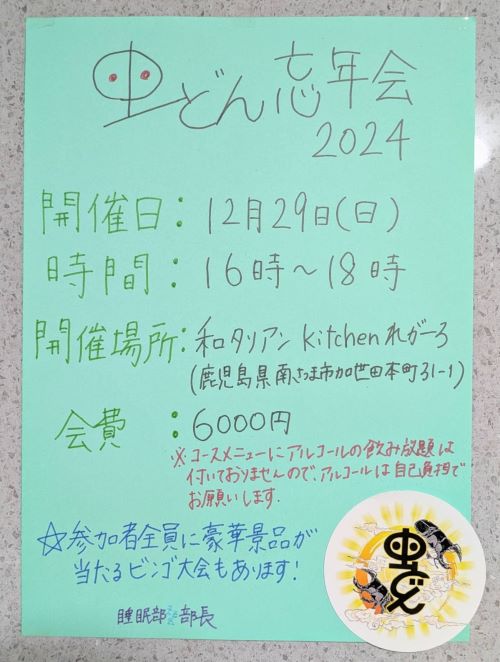 虫どん忘年会
2024
開催日：12月29日(日)
時間：16時～18時
開催場所：和タリアンkitchenれがーろ
(鹿児島県南さつま市加世田本町31-1)
会費：6000円
※コースメニューにアルコールの飲み放題は
付いておりませんので、アルコールは自己負担で
お願いします.
☆参加者全員に豪華景品が
当たるビンゴ大会もあります!
睡眠部 部長
虫どん